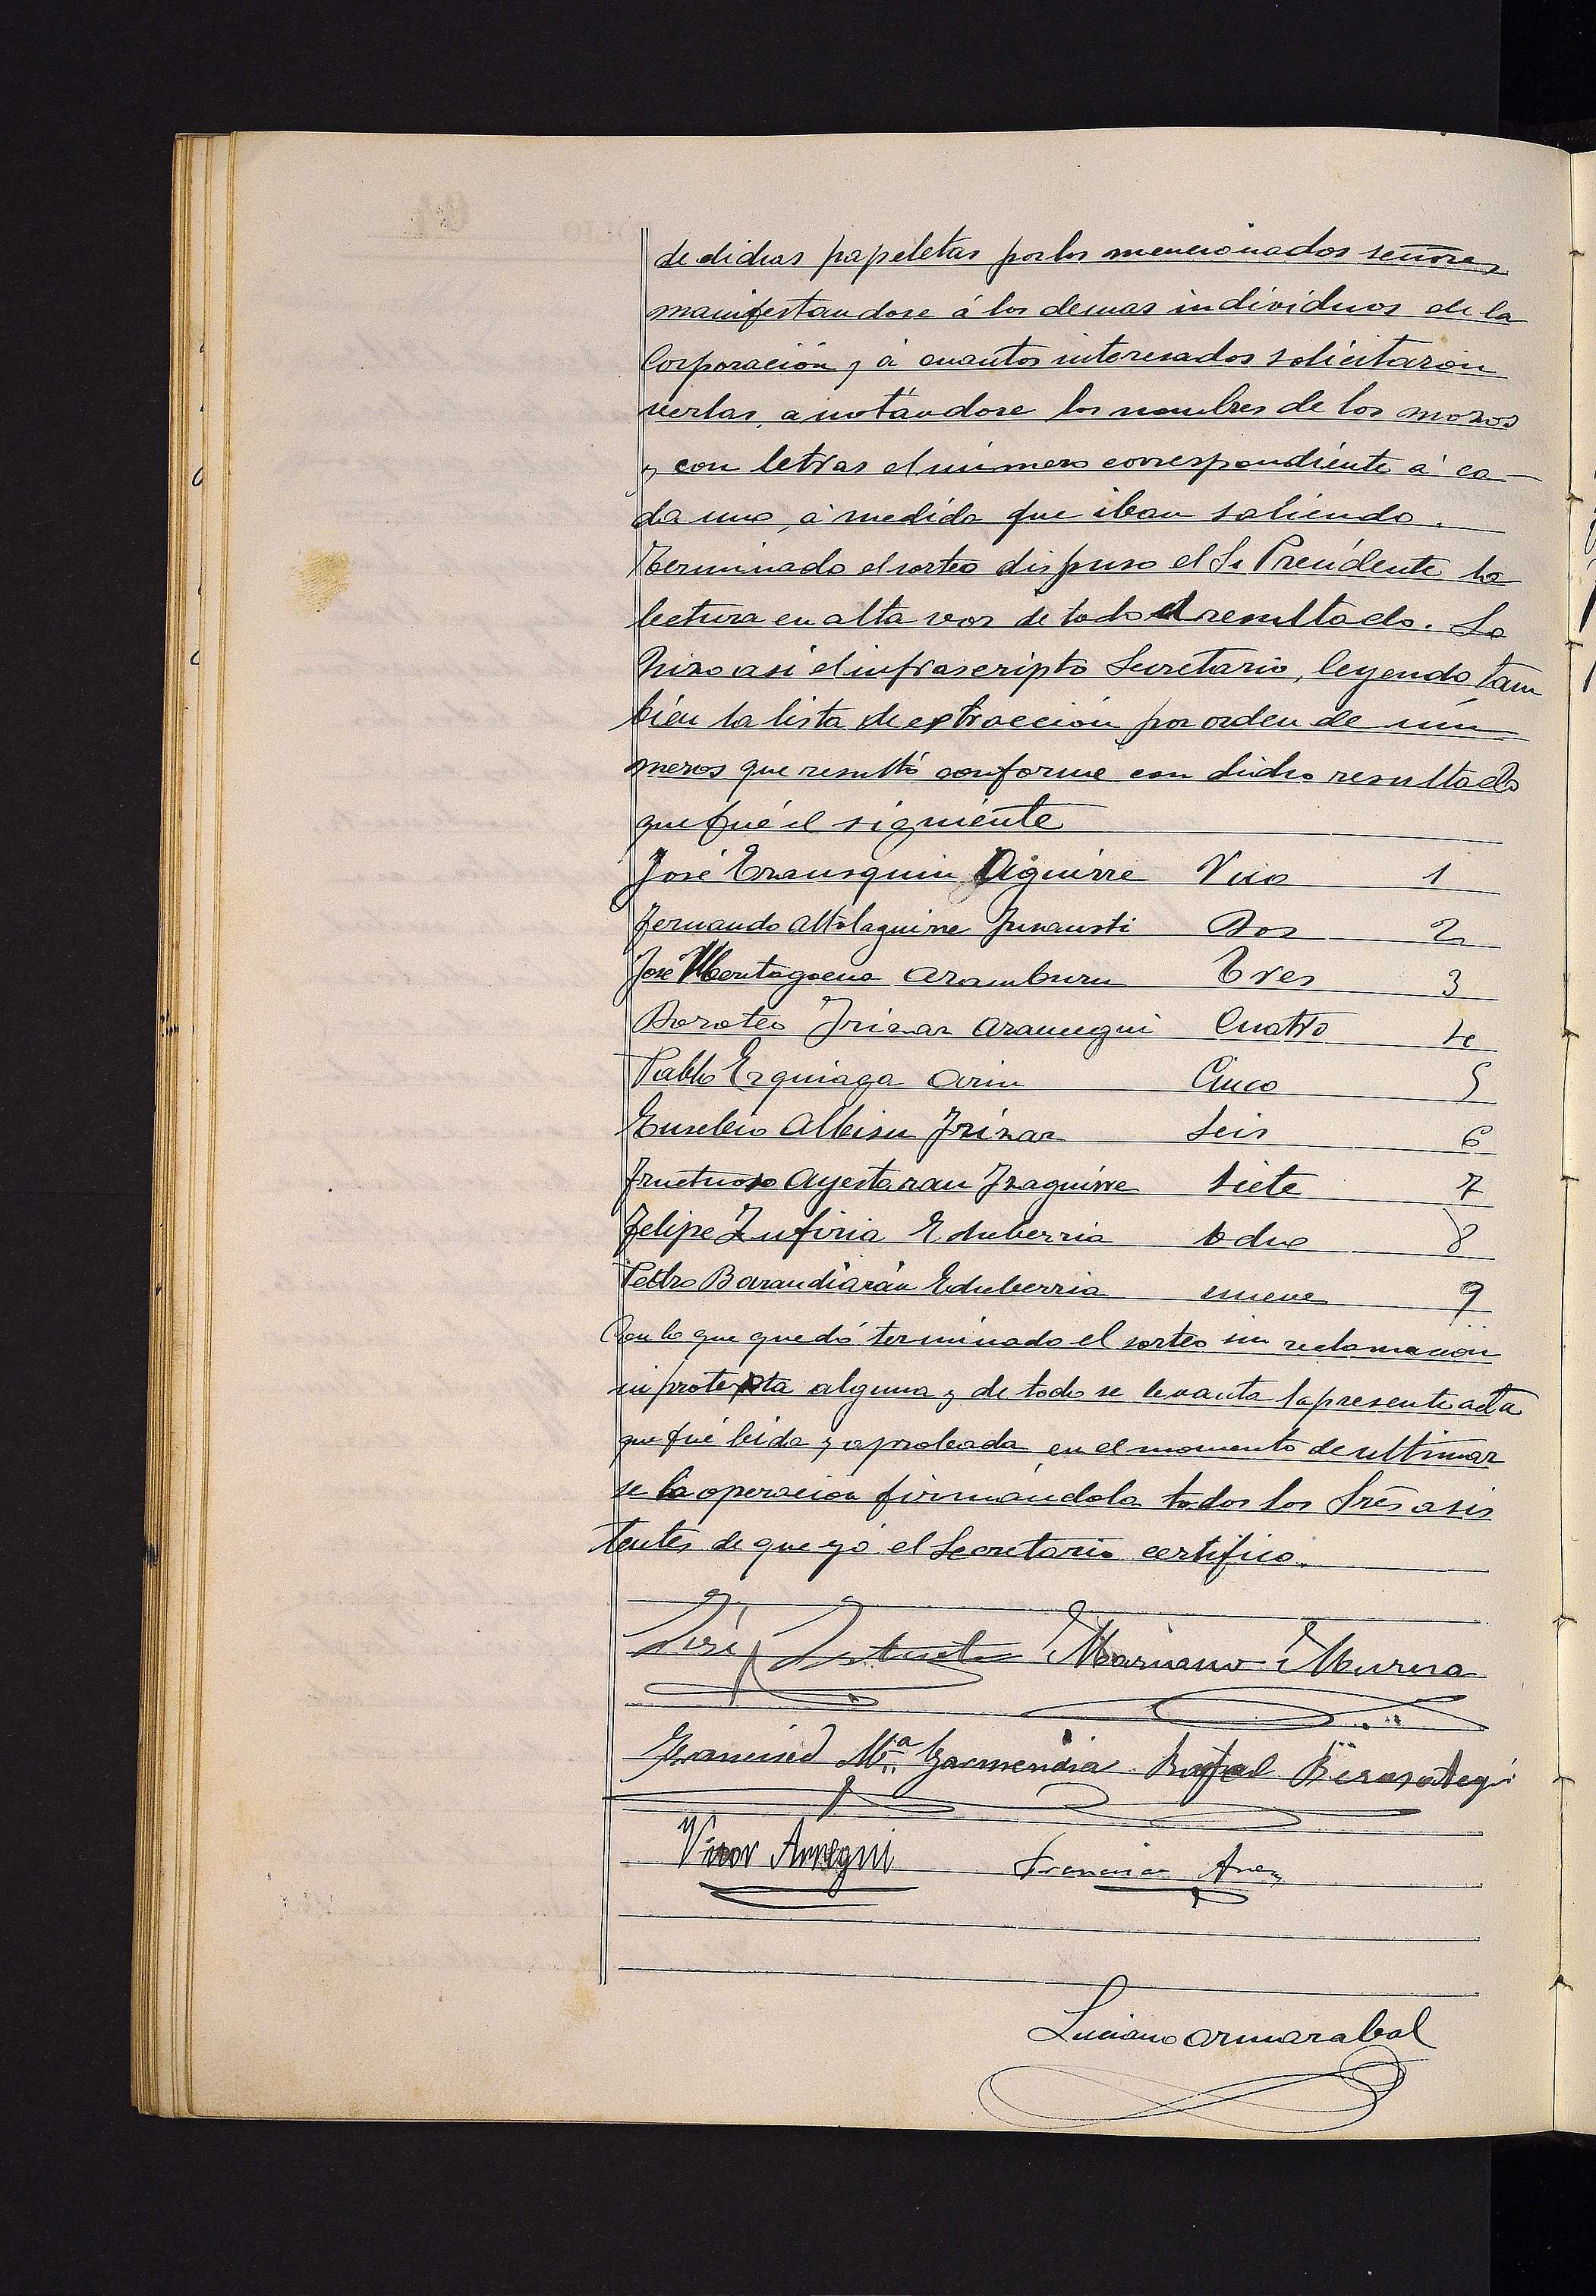 de dichas papeletas por los mencionados señores
manifestandose á los demas individuos de la
Corporación y á cuantos interesados solicitaron
verlas, anotándose los nombres de los mozos
y con letras el número correspondiente á ca
da uno, á medida que iban saliendo.
Terminado el sorteo dispuso el Sr Presidente la
lectura en alta voz de todo el resultado. Lo
hizo asi el infrascripto Secretario, leyendo tam
bién la lista de extracción por orden de nú
meros que resultó conforme con dicho resultado
que fué el siguiente
José Erausquin Aguirre Uno 1
Fernando Altolaguirre Insausti Dos 2
José Mentagoena Aramburu Tres 3
Doroteo Irizar Aramegui Cuatro 4
Pablo Ezquiaga Arin Cinco 5
Eusebio Albisu Irizar Seis 6
Fructuoso Ayestaran Izaguirre Siete 7
Felipe Zufiria Echeberria Ocho 8
Pedro Barandiarán Echeberria nueve 9
Con lo que quedó terminado el sorteo sin reclamacion
ni protesta alguna y de todo se levanta la presente acta
que fué leida y aprobada en el momento de ultimar
se la operación firmándola todos los Sres asis
tentes de que yo el Secretario certifico.
José Mariano Murua
Francisco Mª Garmendia Rafael Berasategui
Francisco
Luciano Armarabal